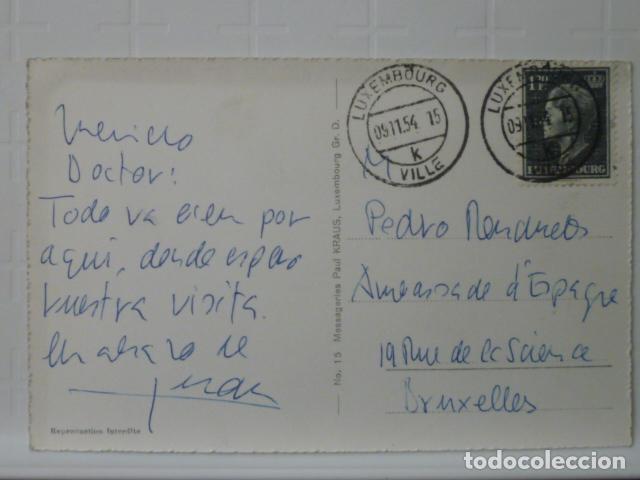 Querido
Doctor:
Todo va bien por
aquí, donde espero
vuestra visita.
Un abrazo de
Reproduction interdite
No. 15 Messageries Paul KRAUS, Luxembourg Gr. D.
LUXEMBOURG
09.11.54 15
K
VILLE
LUXEMBOURG
09.11.54 15
1.20
LUXEMBOURG
M
Pedro
Ambassade d'Espagne
19 Rue de la Science
Bruxelles
todocoleccion.net